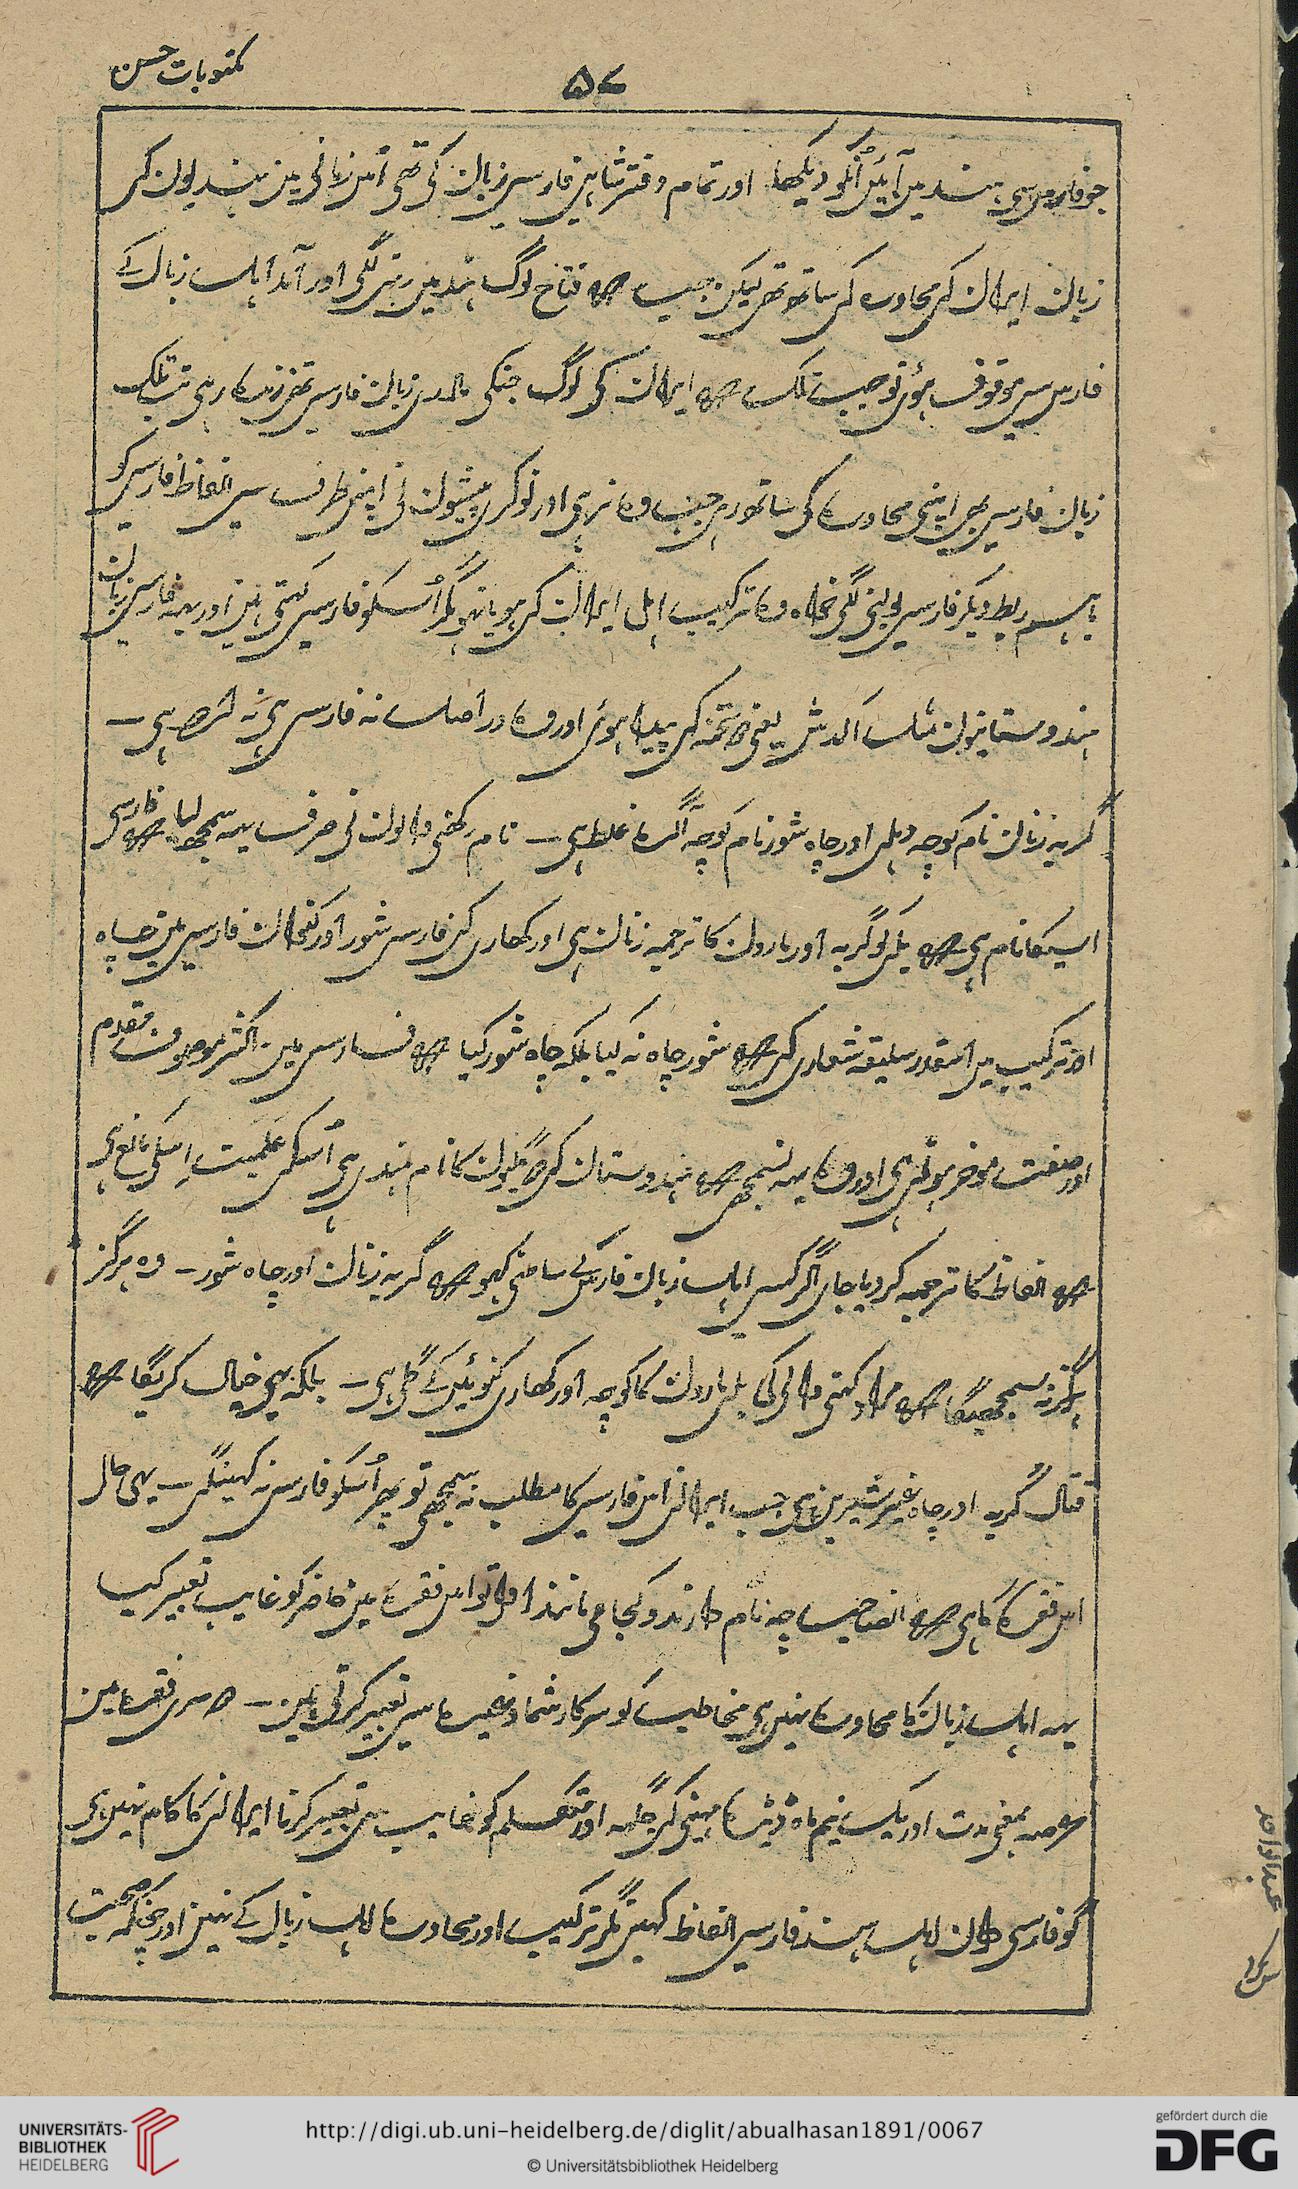 مکتوبات حسن
۵۷
جو فارس سی ہند میں آئیں اُنکو دیکھا اور تمام دفتر شاہی فارسی زبان کی تھی اس زمانی مین ہندیون کی
زبان ایران کی محاورہ کی ساتھ تھی لیکن جب سی کہ فتاح لوگ ہند میں رہنی لگی اور آمد اہل زبان کے
فارس سی موقوف ہوئی تو جب تلک کہ ایران کی لوگ جنکی مادری زبان فارسی تھی زندہ رہی تب تلک
زبان فارسی بھی اپنی محاورہ کی ساتھ رہی جب وہ نرہی اور نوکری پیشیون نی اپنی طرف سی الفاظ فارسی کو
باہم ربط دیکر فارسی بولنی لگی خواہ وہ ترکیب اہل ایران کی ہو یا نہو مگر اُسکو فارسی کہتی ہین اور یہہ فارسی زبان
ہندوستانیون مثل اَلدش یعنی دو تخمہ کی پیدا ہوئی اور وہ در اصل نہ فارسی ہی نہ ترکی ہی ـ
گربہ زنان نام کوچہ دہلی اور چاہ شور نام کوچہ آگرہ غلط ہی ـ نام رکھنی والون نی صرف یہہ سمجھہ لیا کہ فارسی
اسیکا نام ہی کہ بلی کو گربہ اور مارون کا ترجمہ زنان ہی اور کھاری کی فارسی شور اور کنوان فارسی مین چاہ
اور ترکیب میں اسقدر سلیقہ شعاری کی کہ شور چاہ نہ کیا بلکہ چاہ شور کیا کہ فارسی مین اکثر موصوف مقدم
اور صفت موخر ہوتی ہی اور وہ یہہ نسمجھی کہ ہندوستان کی گلیون کا نام ہندی ہی اُسکی عَلَمیت اِسکی مانع ہی
کہ الفاظ کا ترجمہ کر دیا جای اگر کسی اہل زبان فارس کی سامنی کہو کہ گربہ زنان اور چاہ شور ـ وہ ہرگز
ہرگز نہ سمجھیگا کہ مراد کہنی والی کی بلی مارون کا کوچہ اور کھاری کنوئیں کے گلی ہی ـ بلکہ یہی خیال کریگا کہ
قتال گربہ اور چاہ غیر شیرین ہی جب ایرانی اس فارسی کا مطلب نہ سمجھی تو پھر اُسکو فارسی نہ کہینگی ـ یہی حال
اس فقرہ کا ہی کہ انصاحب چہ نام دارند و کجا می مانند اول تو اس فقرہ مین حاضر کو غایب تعبیر کیا
یہہ اہل زبان کا محاورہ نہیں ہی مخاطب کو سرکار شما وغیرہ سی تعبیر کرتی ہین ـ دوسری فقرہ مین
عرصہ بمعنی مدت اور یک نیم ماہ ڈیڑہ مہینی کی جگہہ اور متکلم کو غایب سی تعبیر کرنا ایرانی کا کام نہیں ہی
گو فارسی دان اہل ہند فارسی الفاظ کہین مگر ترکیب اور محاورہ اہل زبان کے نہین اور جنکی صحبت
UNIVERSITÄTS-
BIBLIOTHEK
HEIDELBERG
http://digi.ub.uni-heidelberg.de/diglit/abualhasan1891/0067
© Universitätsbibliothek Heidelberg
gefördert durch die
DFG